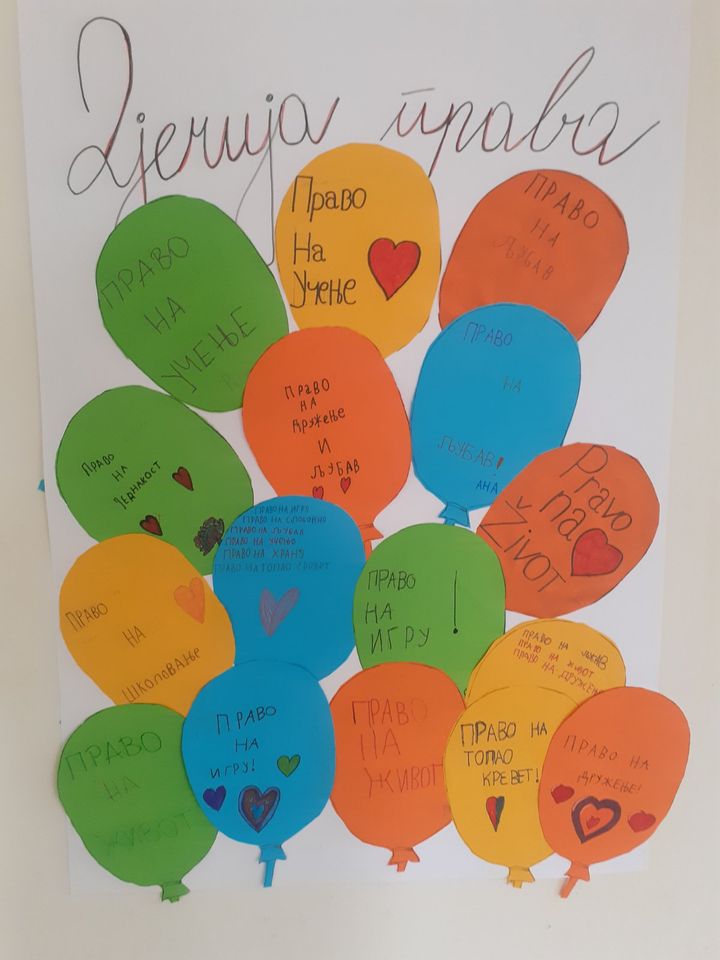 Дјечија права
ПРАВО
НА
УЧЕЊЕ
Право
На
Учење
ПРАВО
НА
ЉУБАВ
ПРАВО
НА
ДРУЖЕЊЕ
И
ЉУБАВ
ПРАВО
НА
ЉУБАВ!
АНА
ПРАВО
НА
ЈЕДНАКОСТ
Pravo
na
ŽivoT
ПРАВО НА ИГРУ
ПРАВО НА СЛОБОДНО
ПРАВО НА ЉУБАВ
ПРАВО НА УЧЕЊЕ
ПРАВО НА ХРАНУ
ПРАВО НА ТОПАО КРЕВЕТ
ПРАВО
НА
ИГРУ!
ПРАВО
НА
ШКОЛОВАЊЕ
ПРАВО НА ЉУБАВ
ПРАВО НА ЖИВОТ
ПРАВО НА ДРУЖЕЊЕ
ПРАВО
НА
ЖИВОТ
ПРАВО
НА
ИГРУ!
ПРАВО
НА
ЖИВОТ
ПРАВО НА
ТОПАО
КРЕВЕТ!
ПРАВО НА
ДРУЖЕЊЕ!